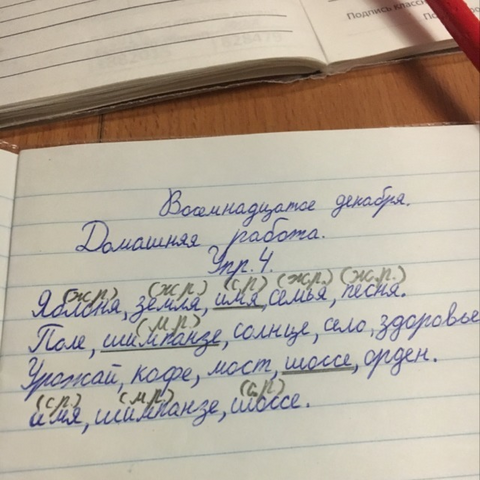 Подпись класс
Восемнадцатое декабря.
Домашняя работа.
Упр. 4.
(ж.р.) (ж.р.) (с.р.) (ж.р.) (ж.р.)
Яблоня, земля, имя, семья, песня.
(м.р.)
Поле, шимпанзе, солнце, село, здоровье
Урожай, кофе, мост, шоссе, орден.
(с.р.) (м.р.) (с.р.)
имя, шимпанзе, шоссе.